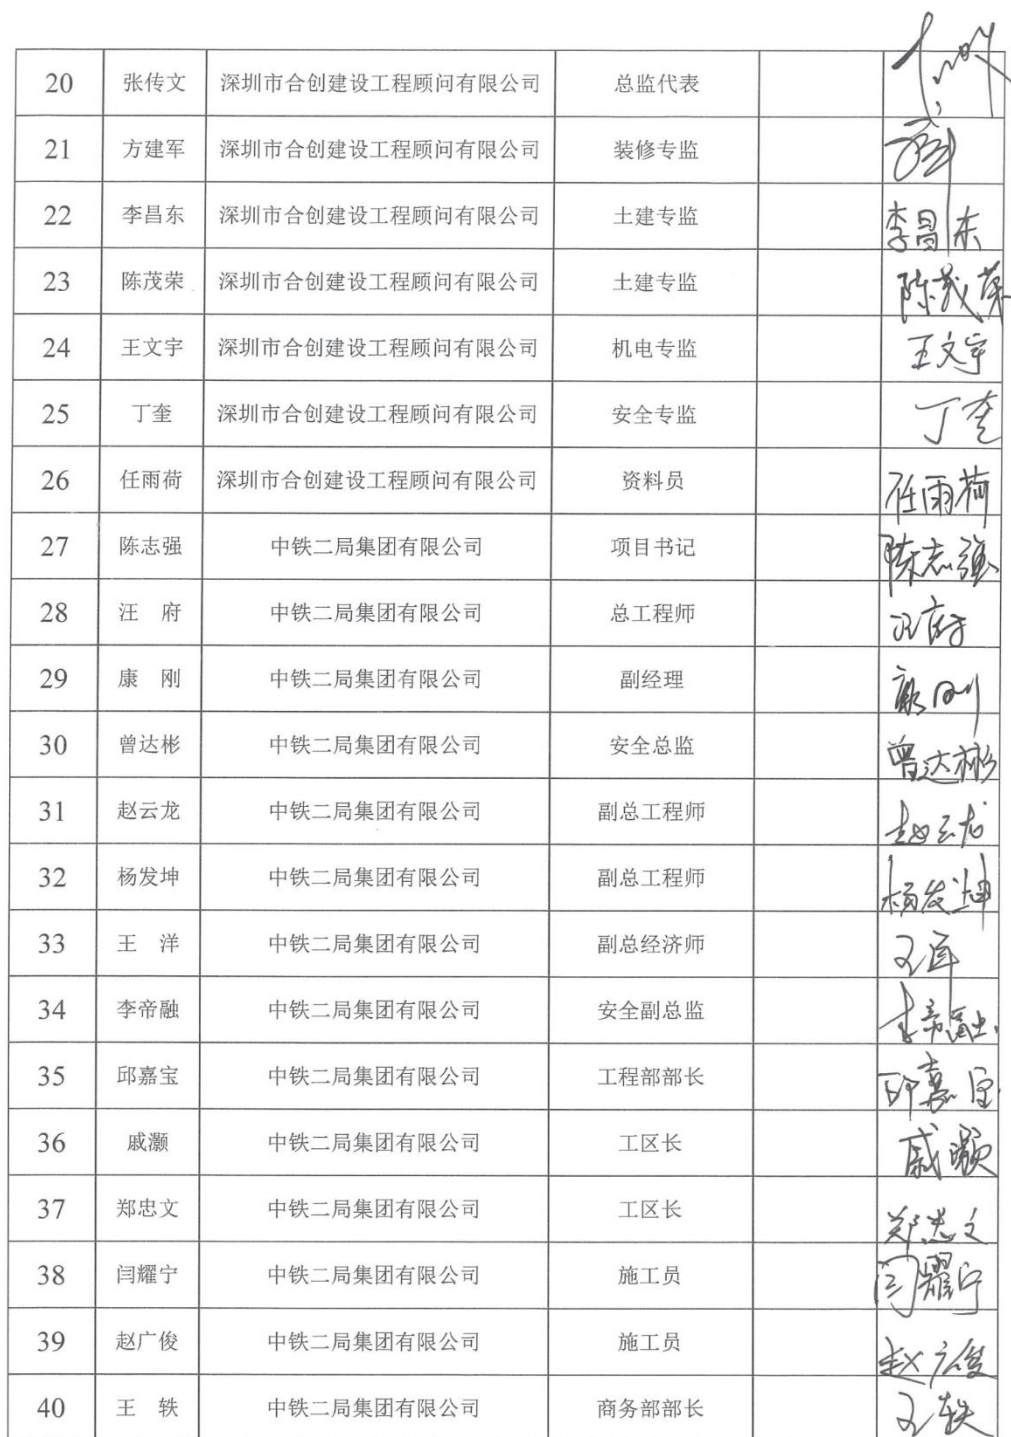 20 张传文 深圳市合创建设工程顾问有限公司 总监代表
21 方建军 深圳市合创建设工程顾问有限公司 装修专监
22 李昌东 深圳市合创建设工程顾问有限公司 土建专监 李昌东
23 陈茂荣 深圳市合创建设工程顾问有限公司 土建专监 陈茂荣
24 王文宇 深圳市合创建设工程顾问有限公司 机电专监 王文宇
25 丁奎 深圳市合创建设工程顾问有限公司 安全专监 丁奎
26 任雨荷 深圳市合创建设工程顾问有限公司 资料员 任雨荷
27 陈志强 中铁二局集团有限公司 项目书记 陈志强
28 汪 府 中铁二局集团有限公司 总工程师 汪府
29 康 刚 中铁二局集团有限公司 副经理 康刚
30 曾达彬 中铁二局集团有限公司 安全总监 曾达彬
31 赵云龙 中铁二局集团有限公司 副总工程师 赵云龙
32 杨发坤 中铁二局集团有限公司 副总工程师 杨发坤
33 王 洋 中铁二局集团有限公司 副总经济师
34 李帝融 中铁二局集团有限公司 安全副总监 李帝融
35 邱嘉宝 中铁二局集团有限公司 工程部部长 邱嘉宝
36 戚灏 中铁二局集团有限公司 工区长 戚灏
37 郑忠文 中铁二局集团有限公司 工区长 郑忠文
38 闫耀宁 中铁二局集团有限公司 施工员 闫耀宁
39 赵广俊 中铁二局集团有限公司 施工员 赵广俊
40 王 轶 中铁二局集团有限公司 商务部部长 王轶